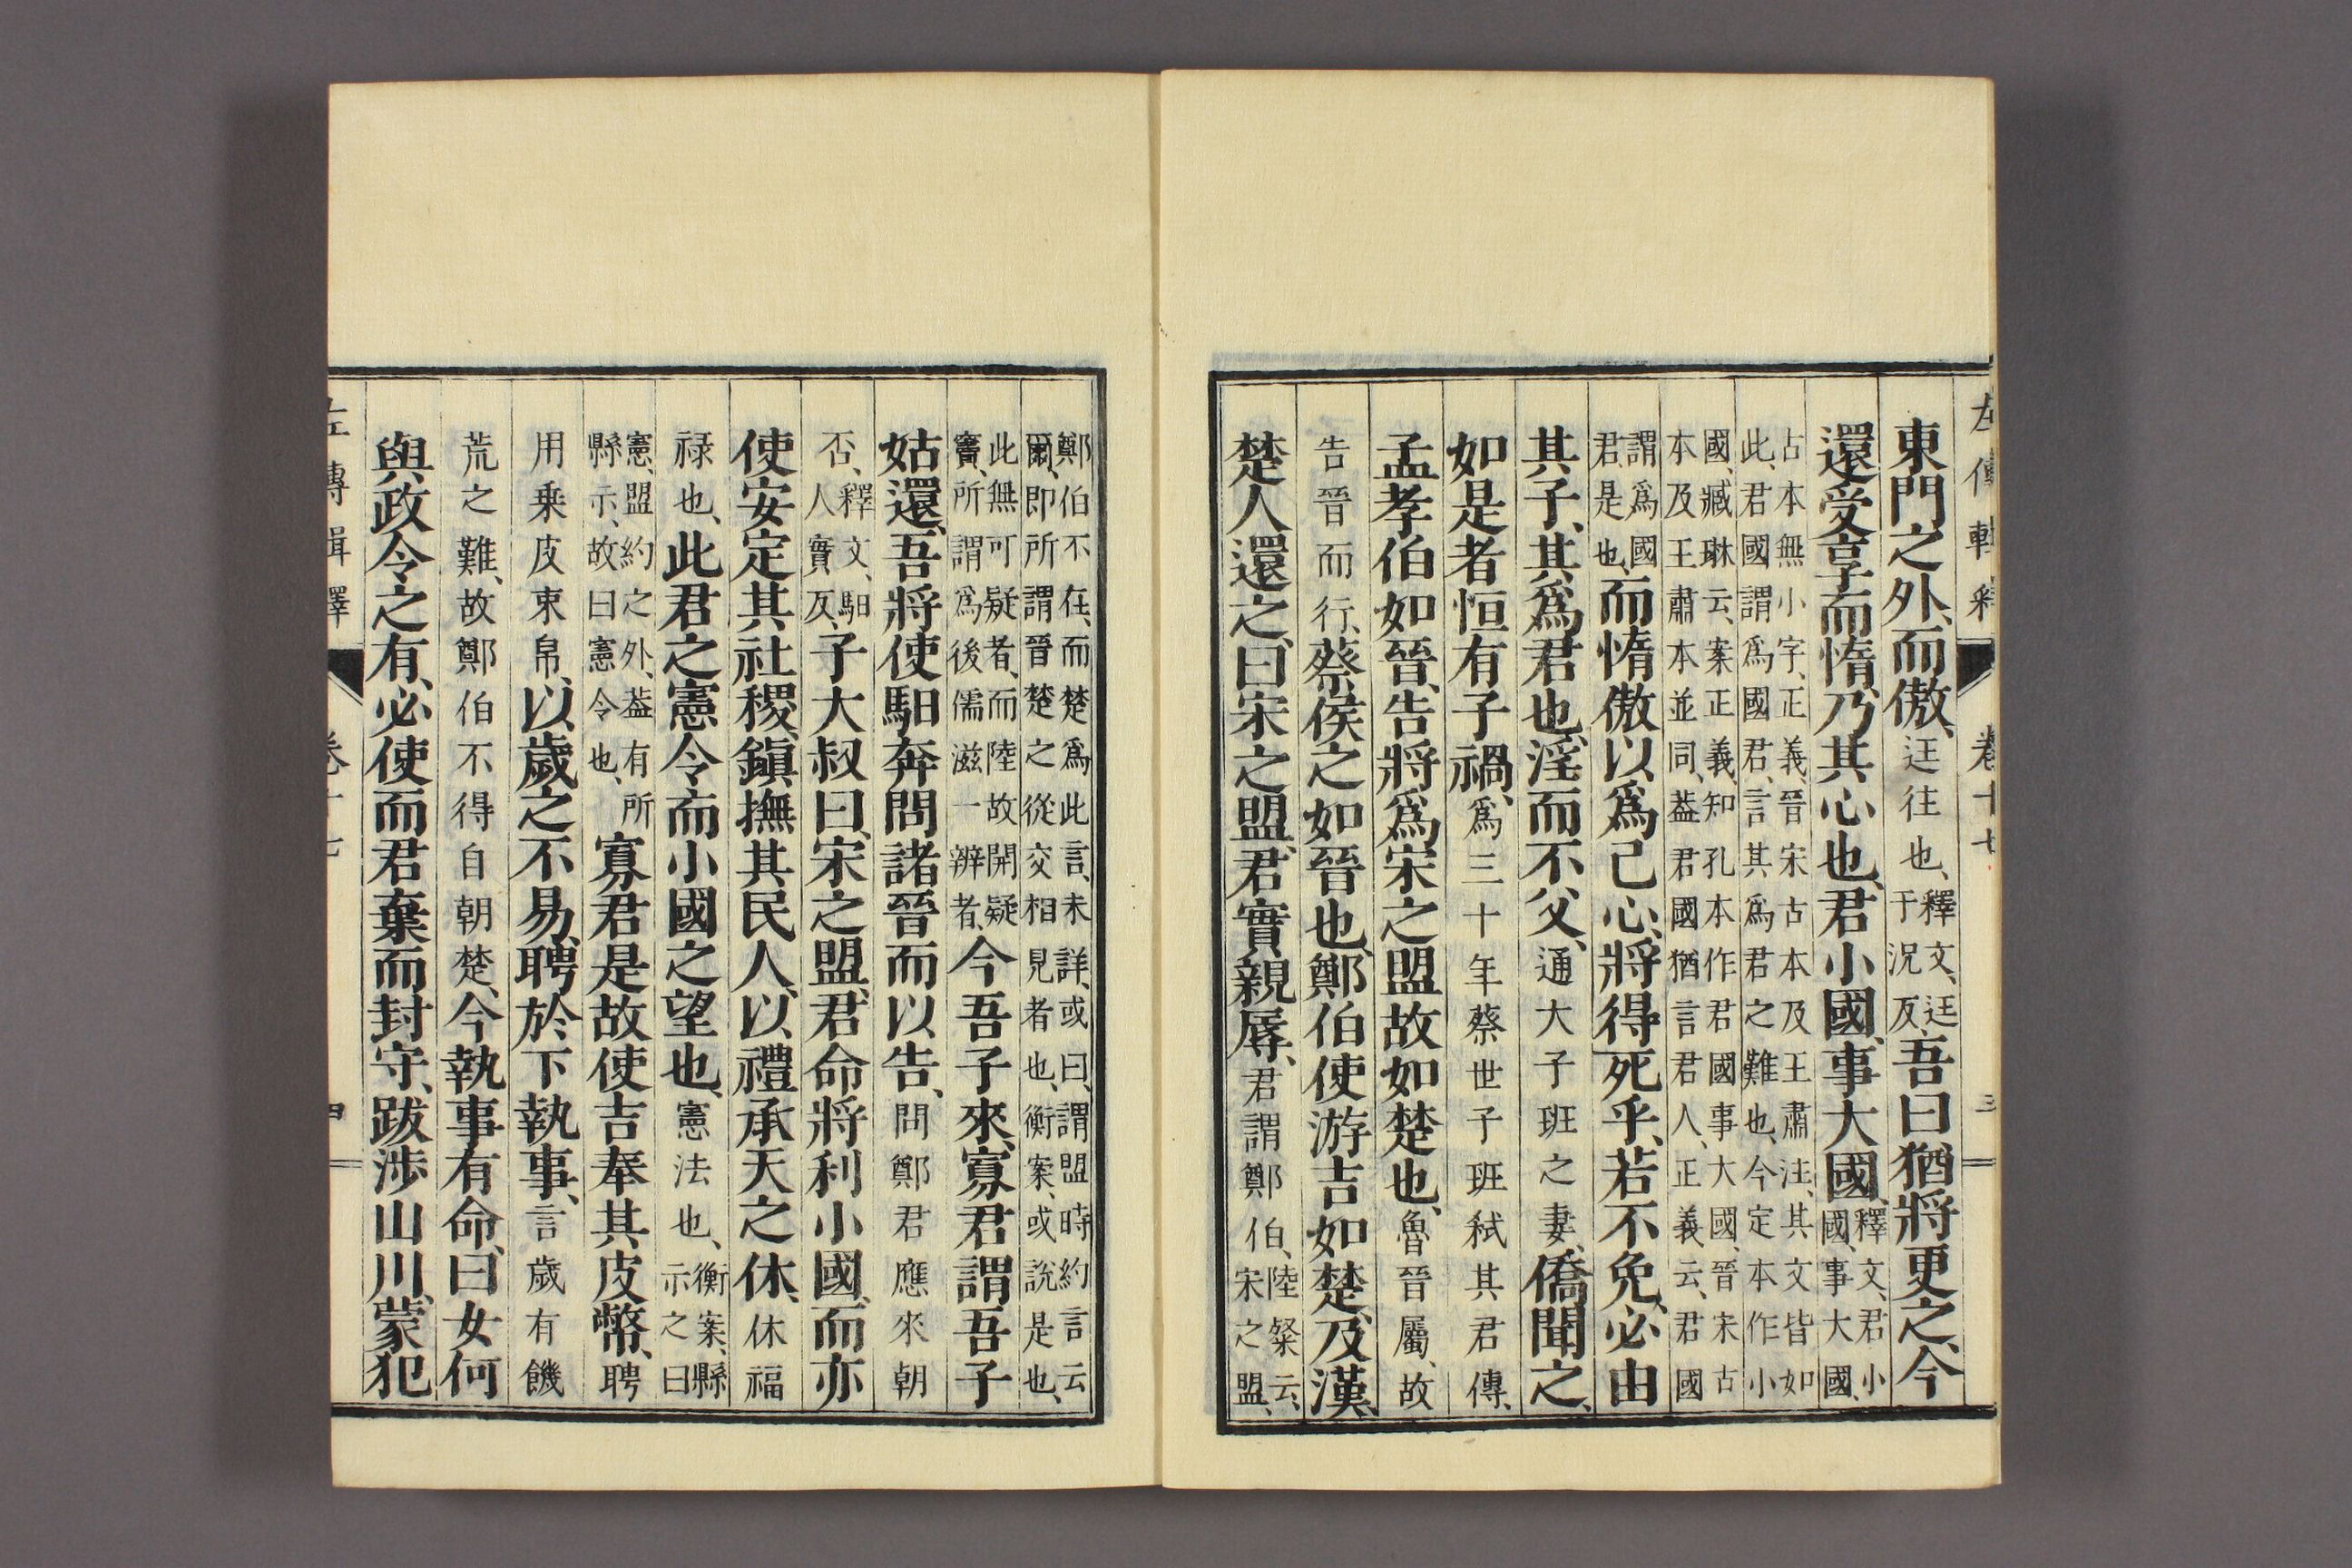 左傳輯釋 卷十七 三
東門之外、而傲、迋往也、釋文、迋于況反、吾曰猶將更之、今
還受享而惰、乃其心也、君小國、事大國、釋文、君小國、事大國、
古本無小字、正義、晉宋古本及王肅注、其文皆如
此、君國謂爲國君、言其爲君之難也、今定本作小
國、臧琳云、案正義、知孔本作君國事大國、晉宋古
本及王肅本並同、葢君國猶言君人、正義云、君國
謂爲國君是也、而惰傲以爲己心、將得死乎、若不免、必由
其子、其爲君也、淫而不父、通大子班之妻、僑聞之、
如是者恒有子禍、爲三十年蔡世子班弒其君傳、
孟孝伯如晉、告將爲宋之盟故如楚也、魯晉屬、故
告晉而行、蔡侯之如晉也、鄭伯使游吉如楚、及漢、
楚人還之、曰宋之盟、君實親辱、君謂鄭伯、陸粲云、宋之盟、
鄭伯不在、而楚爲此言、未詳、或曰、謂盟時約言云
爾、即所謂晉楚之從交相見者也、衡案、或說是也、
此無可疑者、而陸故開疑
竇、所謂爲後儒滋一辨者、今吾子來、寡君謂吾子
姑還、吾將使馹奔問諸晉而以告、問鄭君應來朝
否、釋文、馹人實反、子大叔曰、宋之盟、君命將利小國、而亦
使安定其社稷、鎭撫其民人、以禮承天之休、休福
祿也、此君之憲令、而小國之望也、憲法也、衡案、縣示之曰
憲、盟約之外、葢有所縣示、故曰憲令也、寡君是故使吉奉其皮幣、聘
用乗皮束帛、以歲之不易、聘於下執事、言歲有饑
荒之難、故鄭伯不得自朝楚、今執事有命、曰女何
與政令之有、必使而君棄而封守、跋涉山川、蒙犯
左傳輯釋 卷十七 四